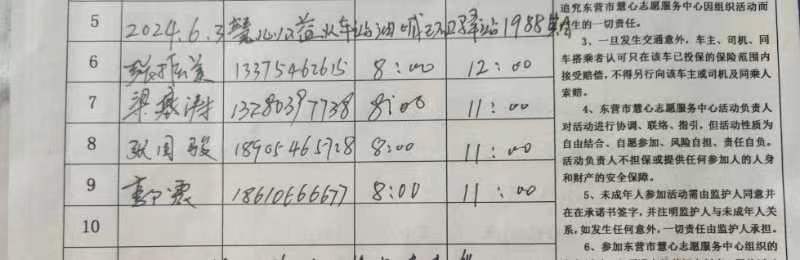 5 2024.6.3慧心公益火车站
6 13375462615 8:00 12:00
7 梁 13280397738 8:00 11:00
8 张国骏 18905465728 8:00 11:00
9 18610666677 8:00 11:00
10
追究东营市慧心志愿服务中心因组织活动而
生的一切责任。
3、一旦发生交通意外，车主、司机、同
车搭乘者认可只在该车已投保的保险范围内
接受赔偿，不得另行向该车主或司机及同乘人
索赔。
4、东营市慧心志愿服务中心活动负责人
对活动进行协调、联络、指引，但活动性质为
自由结合、自愿参加、风险自担、责任自负。
活动负责人不担保或提供任何参加人的人身
和财产的安全保障。
5、未成年人参加活动需由监护人同意并
在在承诺书签字，并注明监护人与未成年人关
系，如发生任何意外，一切责任由监护人承担。
6、参加东营市慧心志愿服务中心组织的